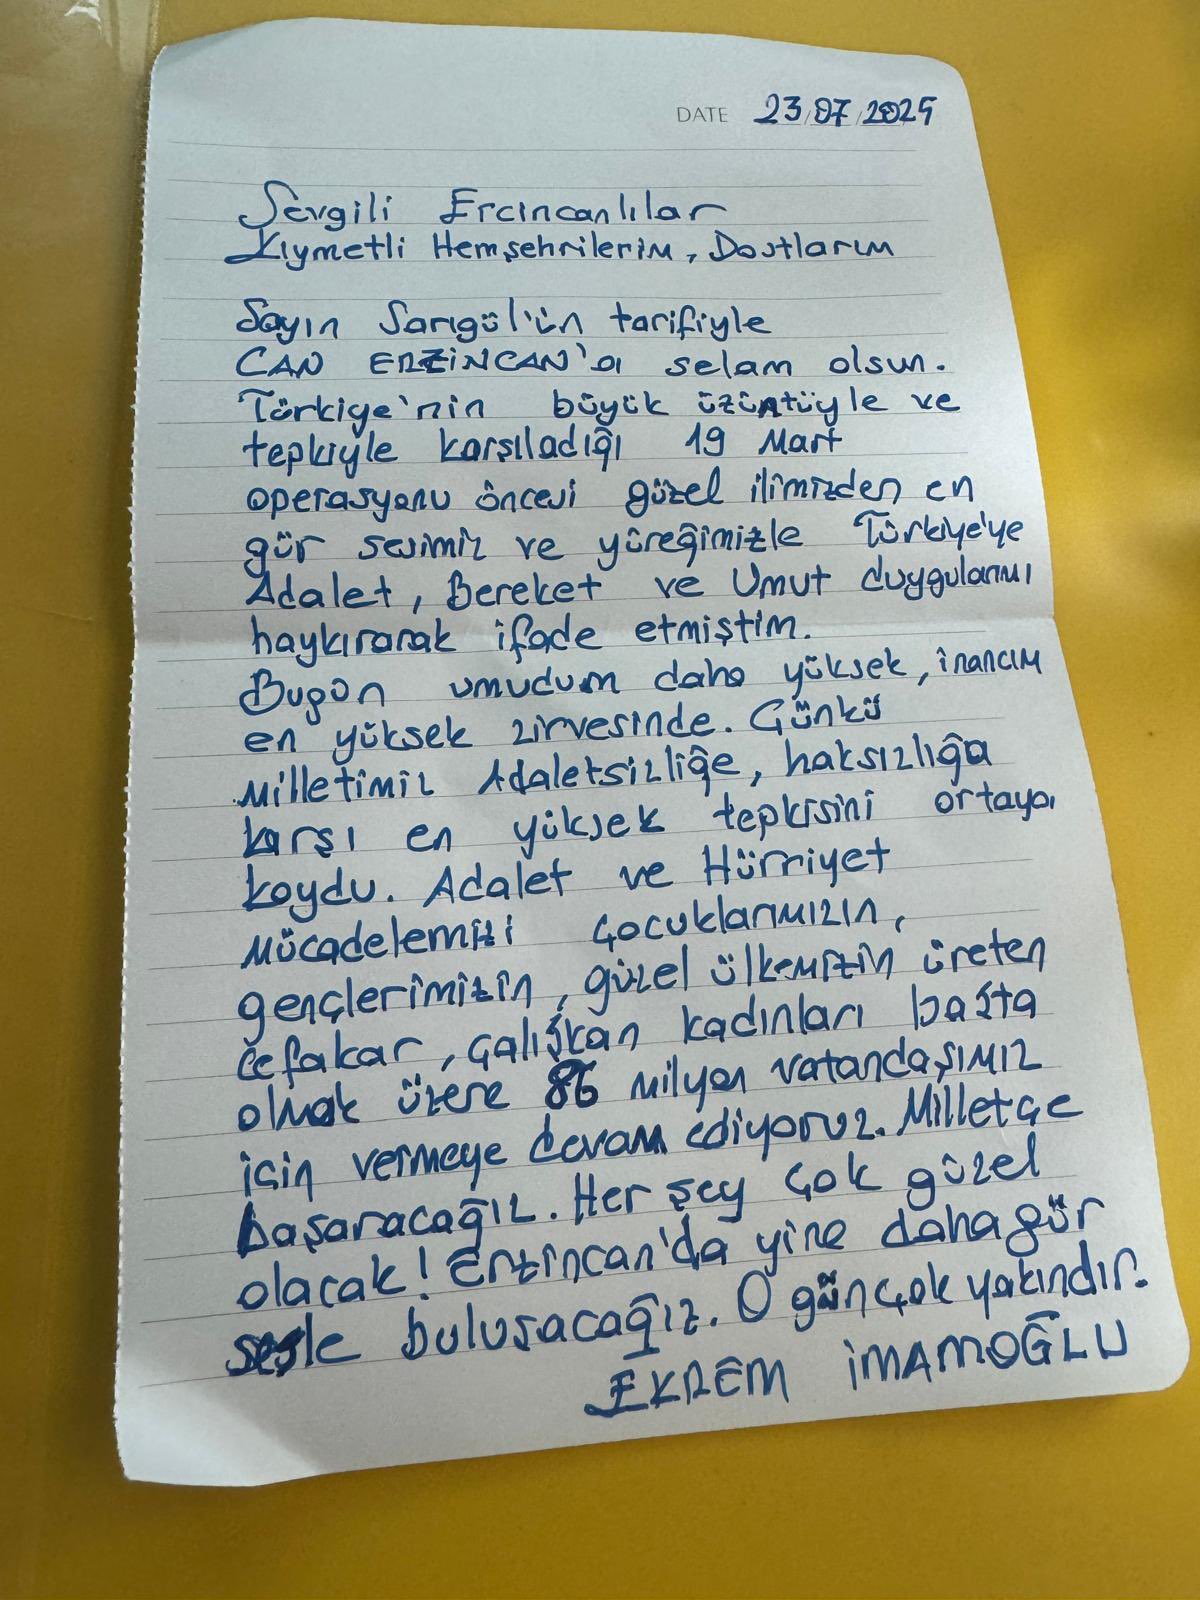 DATE 23/07/2025
Sevgili Ercincanlılar
Kıymetli Hemşehrilerim, Dostlarım
Sayın Sarıgül'ün tarifiyle
CAN ERZİNCAN'a selam olsun.
Türkiye'nin büyük üzüntüyle ve
tepkiyle karşıladığı 19 Mart
operasyonu öncesi güzel ilimizden en
gür sesimiz ve yüreğimizle Türkiye'ye
Adalet, Bereket ve Umut duygularımı
haykırarak ifade etmiştim.
Bugün umudum daha yüksek, inancım
en yüksek zirvesinde. Çünkü
Milletimiz Adaletsizliğe, haksızlığa
karşı en yüksek tepkisini ortaya
koydu. Adalet ve Hürriyet
Mücadelemizi çocuklarımızın,
gençlerimizin, güzel ülkemizin üreten
cefakar, çalışkan kadınları başta
olmak üzere 86 milyon vatandaşımız
için vermeye devam ediyoruz. Milletçe
başaracağız. Her şey çok güzel
olacak! Erzincan'da yine daha gür
sesle buluşacağız. O gün çok yakındır.
EKREM İMAMOĞLU